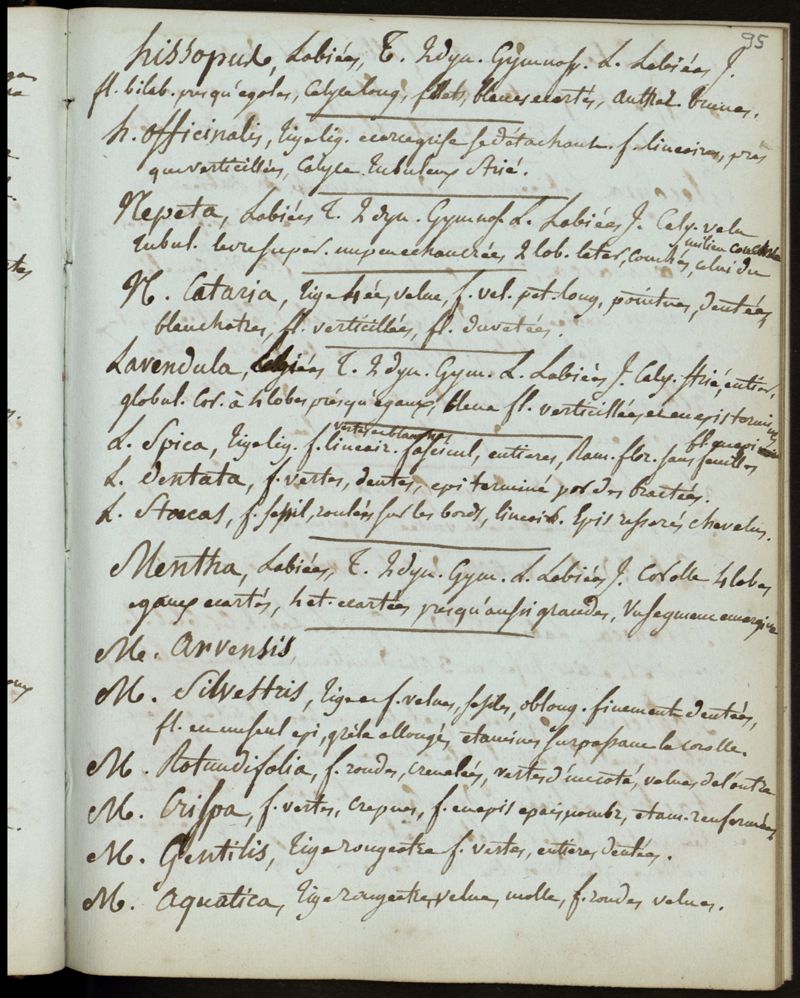 95
hissopus, Labiées, T. 2dyn. Gymnosp. L. Labiées J.
fl. bilab. presqu'egales, Calyce long, filets, bleues ecartés, Anther. brunes.
h. officinalis, Tige lig. ecorce grise se détachant. f. lineaires, pres
que verticillées, Calyce Tubuleux Strié.
Nepeta, Labiées T. 2dyn. Gymnosp. L. Labiées J. Caly. velu
milieu concave
Tubul. levre super. un peu echancrée, 2 lob. later, courtes, celui du
N. Cataria, Tige 4ée, velue, f. vel. pet. long, pointues, dentées
blanchatres, fl. verticillées, fl. duvetées.
Lavendula, Labiées T. 2dyn. Gym. L. Labiées J. Caly. strié, entier,
global. Cor. à 4 lobes presqu'egaux, bleue fl. verticillées en epis termin
vertes en blanch
L. Spica, Tige lig. f. lineair. fascicul, entieres, Ram. flor. sans feuilles
L. dentata, f. vertes, dentes, epi terminé par des bractées.
L. Stoecas, f. sessil, roulées sur les bords, lineair. Epis resserrés chevelus.
Mentha, Labiées, T. 2dyn. Gym. L. Labiées J. Corolle 4 lobes
egaux ecartés, 4 et. ecartées presqu'aussi grandes, Un segment emarginé
M. arvensis,
M. Silvestris, Tige et f. velues, sessiles, oblong. finement dentées,
fl. en un seul epi, grêle allongé, etamines surpassant la corolle.
M. Rotundifolia, f. rondes, crenelées, vertes d'un coté, velues de l'autre
M. Crispa, f. vertes, crepues, f. en epis epais, etam. renfermées
M. Gentilis, Tige rougeatre f. vertes, entieres dentées.
M. aquatica, Tige rougeatre, velue, molle, f. rondes velues.